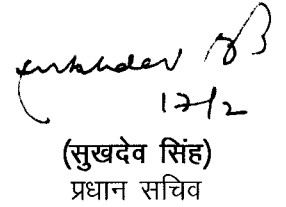 17/2
(सुखदेव सिंह)
प्रधान सचिव